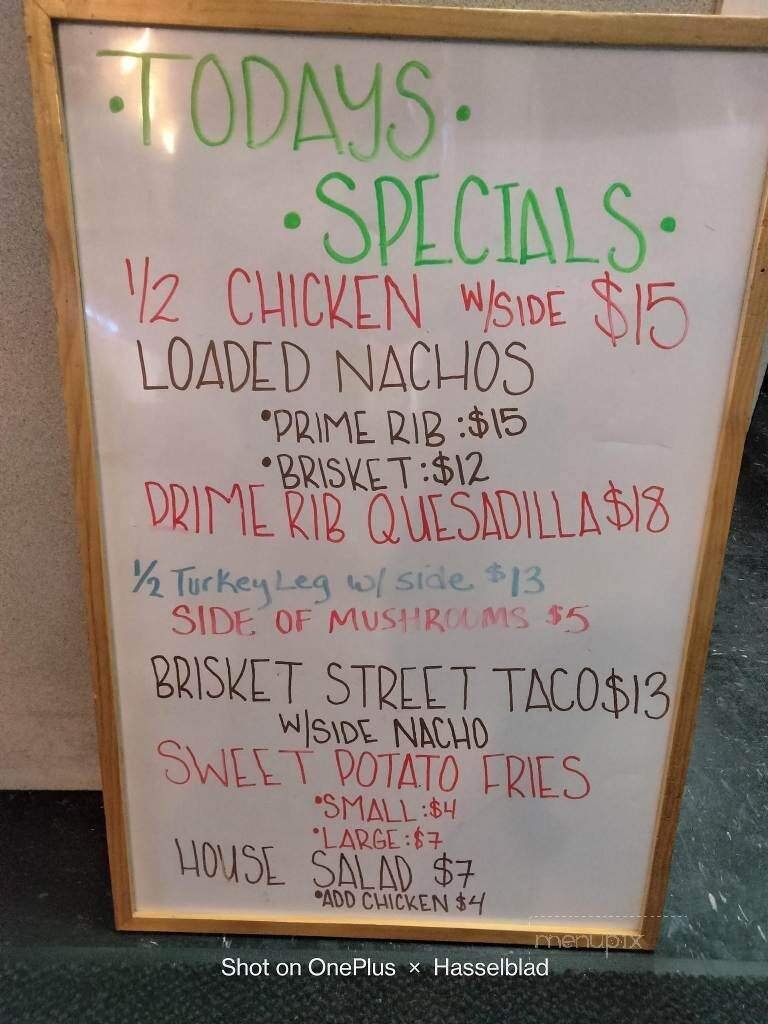 •TODAYS•
•SPECIALS•
1/2 CHICKEN W/SIDE $15
LOADED NACHOS
•PRIME RIB:$15
•BRISKET:$12
PRIME RIB QUESADILLA $18
1/2 Turkey Leg w/ side $13
SIDE OF MUSHROOMS $5
BRISKET STREET TACO $13
W/SIDE NACHO
SWEET POTATO FRIES
•SMALL:$4
•LARGE:$7
HOUSE SALAD $7
•ADD CHICKEN $4
menupix
Shot on OnePlus × Hasselblad